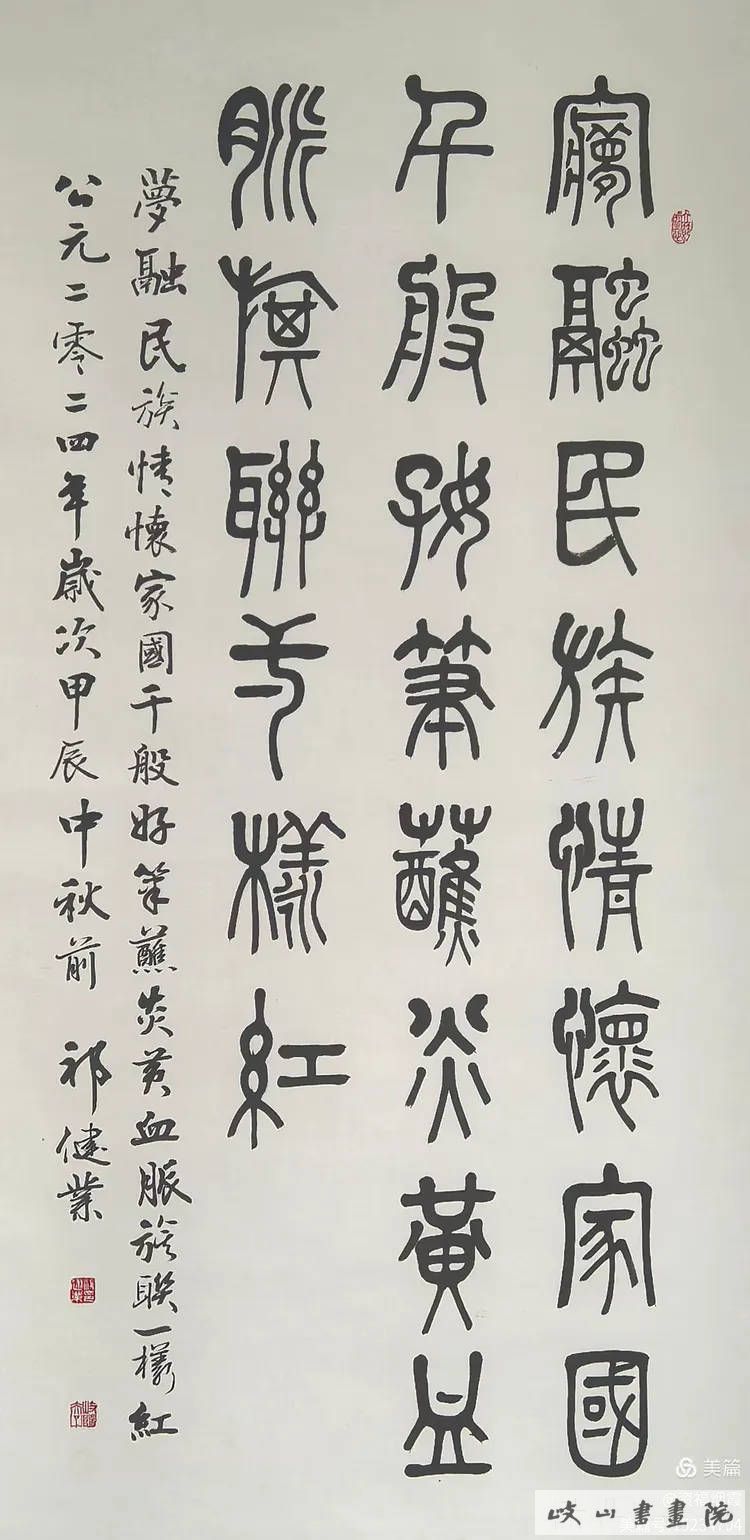 夢融民族情懷家國
千般好筆蘸炎黃血
脈聯樣紅
夢融民族情懷家國千般好筆蘸炎黃血脈聯一樣紅
公元二零二四年歲次甲辰中秋前 祁健業
美篇
岐山書畫院